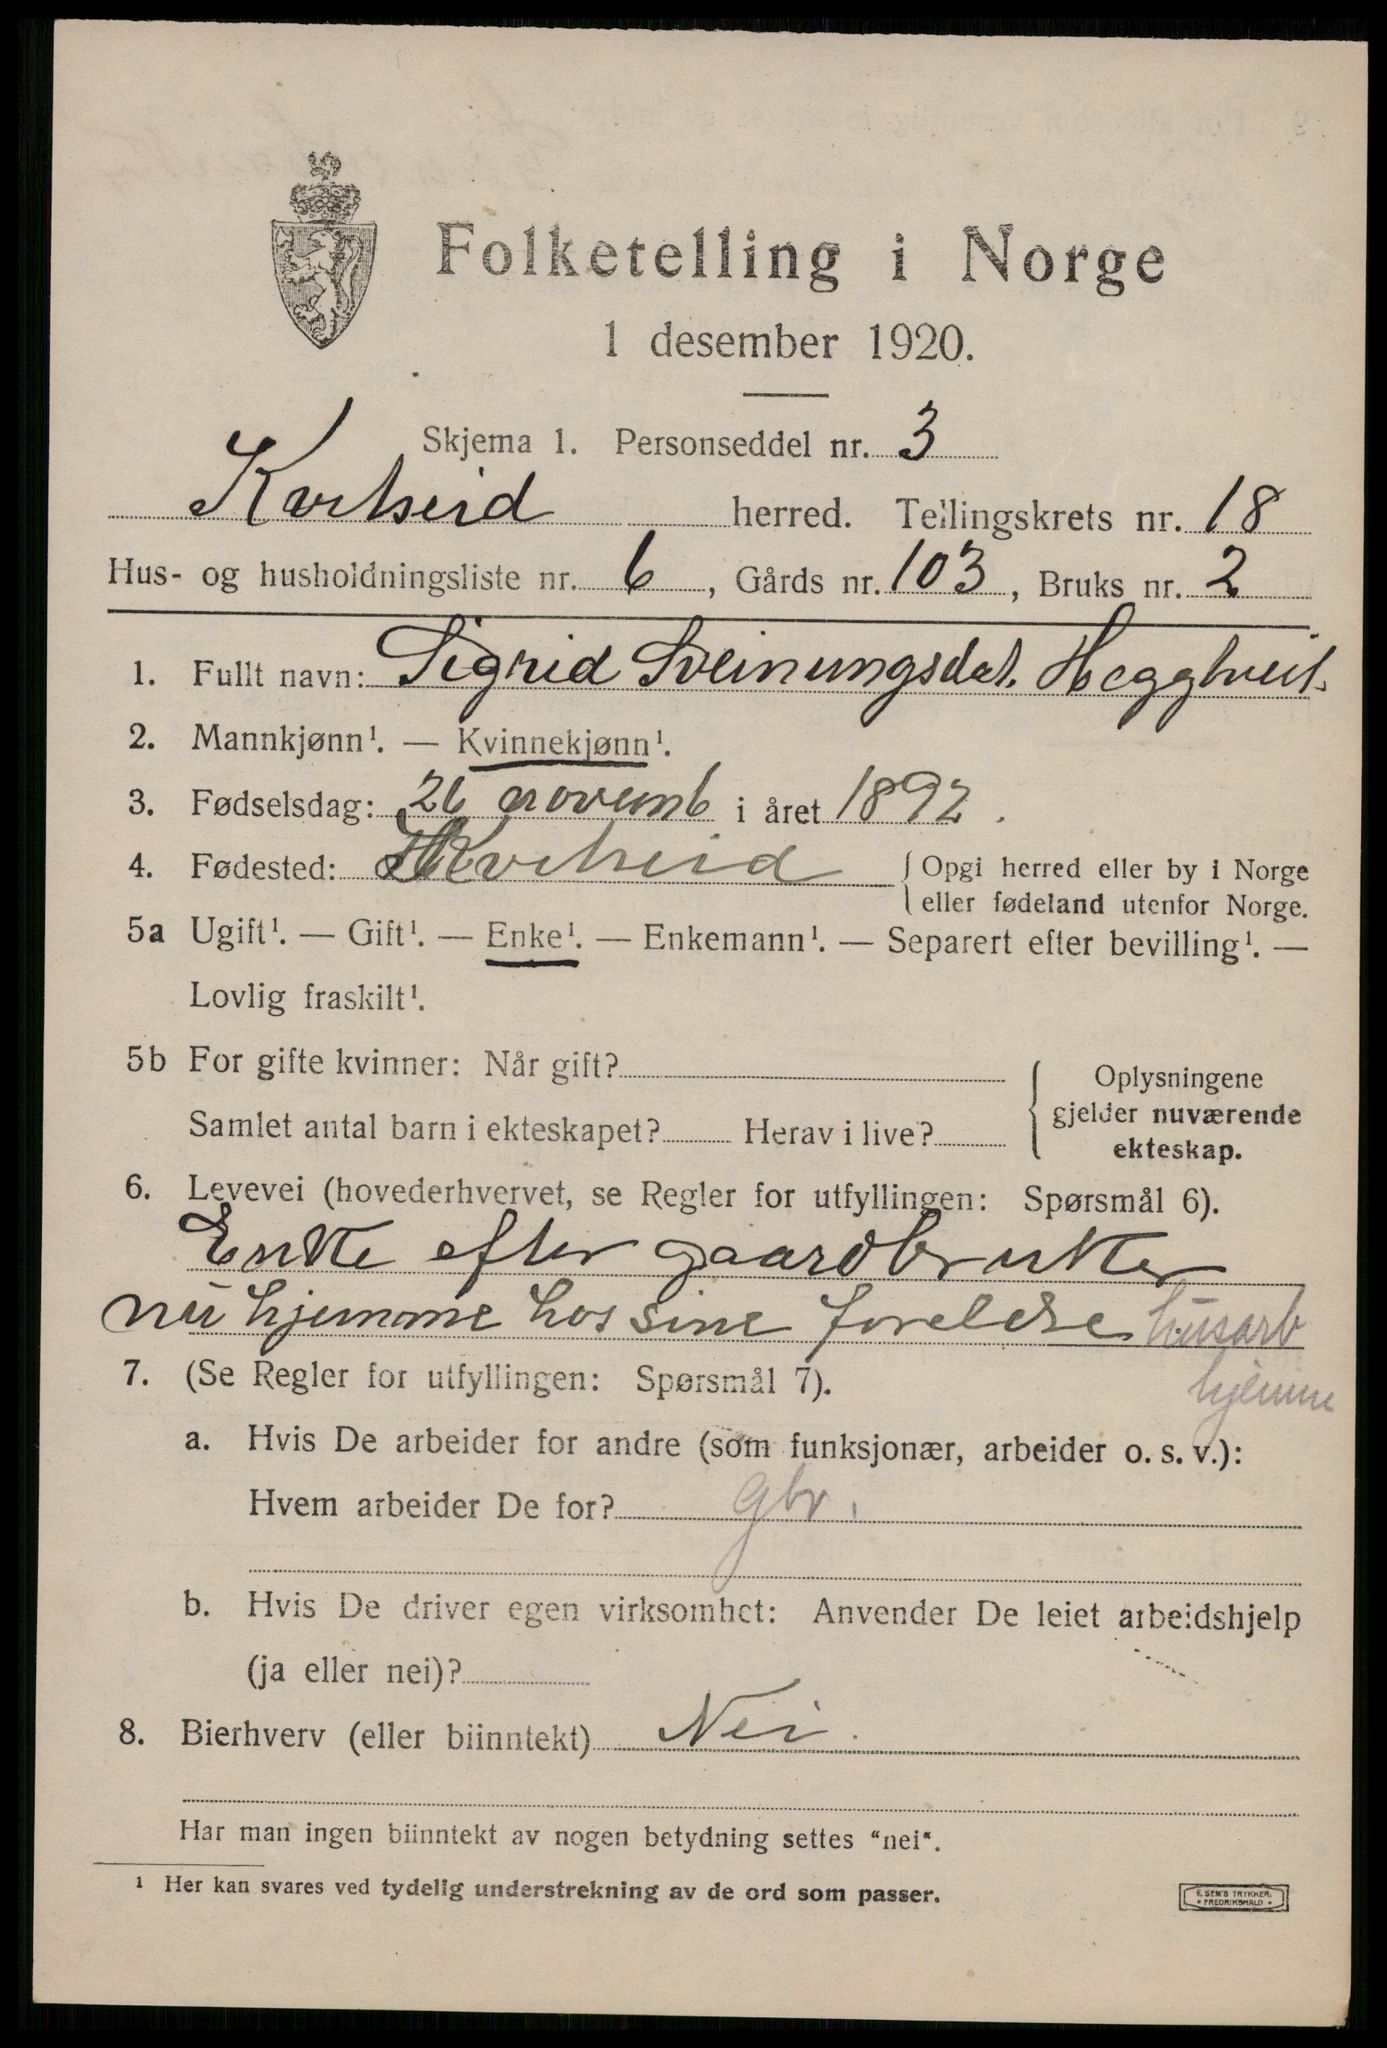 Folketelling i Norge
1 desember 1920.
Skjema 1. Personseddel nr. 3
Kvitseid herred. Tellingskrets nr. 18
Hus- og husholdningsliste nr. 6, Gårds nr. 103, Bruks nr. 2
1. Fullt navn: Sigrid Sveinungsdat. Heggtveit.
2. Mannkjønn¹. — Kvinnekjønn¹.
3. Fødselsdag: 26 novemb i året 1892.
4. Fødested: Kvitseid { Opgi herred eller by i Norge
eller fødeland utenfor Norge.
5a Ugift¹. — Gift¹. — Enke¹. — Enkemann¹. — Separert efter bevilling¹. —
Lovlig fraskilt¹.
5b For gifte kvinner: Når gift?
Samlet antal barn i ekteskapet? Herav i live?
Oplysningene
gjelder nuværende
ekteskap.
6. Levevei (hovederhvervet, se Regler for utfyllingen: Spørsmål 6).
Enke efter gaardbruker
nu hjemme hos sine foreldre husarb
hjemme
7. (Se Regler for utfyllingen: Spørsmål 7).
a. Hvis De arbeider for andre (som funksjonær, arbeider o. s. v.):
Hvem arbeider De for? gbr.
b. Hvis De driver egen virksomhet: Anvender De leiet arbeidshjelp
(ja eller nei)?
8. Bierhverv (eller biinntekt) Nei.
Har man ingen biinntekt av nogen betydning settes "nei".
¹ Her kan svares ved tydelig understrekning av de ord som passer.
E. SEM'S TRYKKERI
• FREDRIKSHALD •